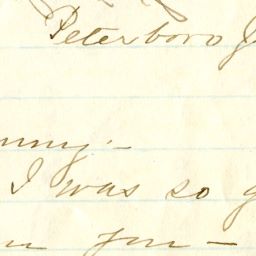 Peterboro J
nny -
I was so g
you -